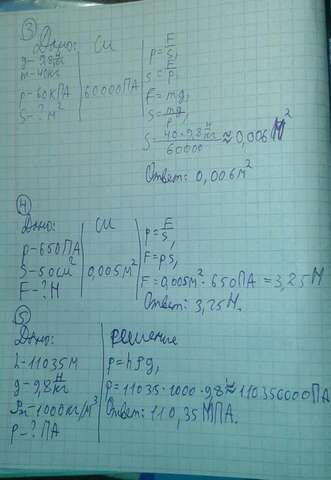 ③
Дано:
g-9,8 Н/кг
m-40кг
p-60кПА
S-? м²
СИ
60000ПА
p=F/S,
S=F/p,
F=mg,
S=mg/p,
S=40·9,8 Н/кг / 60000 ≈ 0,006м²
Ответ: 0,006м²
④
Дано:
p-650ПА
S-50см²
F-?Н
СИ
0,005м²
p=F/S,
F=pS,
F=0,005м²·650ПА=3,25Н
Ответ: 3,25Н.
⑤
Дано:
h-11035м
g-9,8 Н/кг
Pж-1000кг/м³
p-? ПА
решение
p=hρg,
p=11035·1000·9,8≈110350000ПА
Ответ: 110,35МПА.